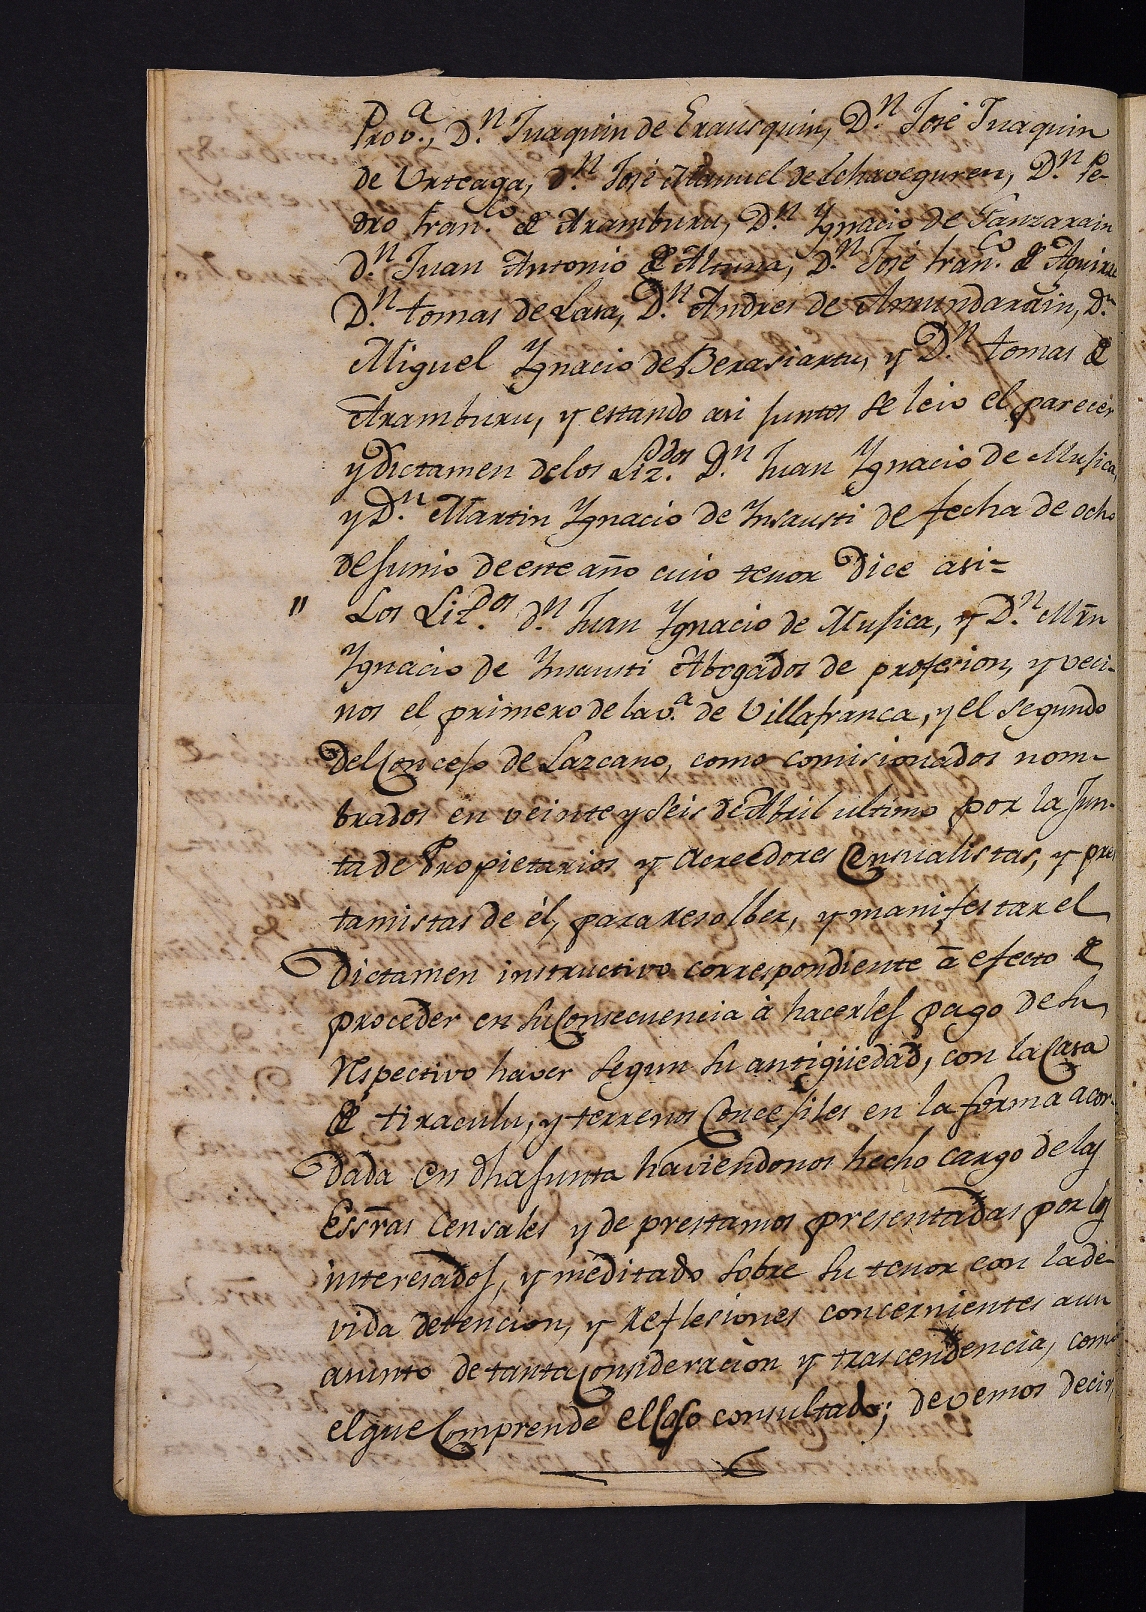 Prov.ª, D.n Juaquin de Erausquin, D.n José Juaquin
de Urteaga, d.n José Manuel de Echaveguren, D.n Pe-
dro Fran.co de Aramburu, D.n Ygnacio de Sanzarain
D.n Juan Antonio de Altuna, D.n José Fran.co de Aguirre
D.n tomas de Lasa, D.n Andres de Amundarain, D.n
Miguel Ygnacio de Berasiartu, y D.n tomas de
Aramburu, y estando asi juntos se leio el parecer
y Dictamen delos Liz.dos D.n Juan Ygnacio de Musica,
y D.n Martin Ygnacio de Ynsausti de fecha de ocho
de Junio de este año cuio tenor Dice asi=
" Los Liz.dos d.n Juan Ygnacio de Musica, y D.n Mrn
Ygnacio de Ynsausti Abogados de profesion, y veci-
nos el primero de la v.ª de Villafranca, y el segundo
del Concejo de Lazcano, como comisionados nom-
brados en veinte y seis de Abril ultimo por la Jun-
ta de Propietarios y Acreedores Censualistas, y pres
tamistas de él, para resolber, y manifestar el
Dictamen instructivo correspondiente á efecto de
proceder en su Consecuencia à hacerles pago de su
Respectivo haver segun su antigüedad, con la Casa
de tiraculu, y terrenos Concejiles en la forma acor-
dada en dha Junta haviendonos hecho cargo de las
Essras Censales y de prestamos presentadas por los
interesados, y meditado sobre su tenor con la de-
vida detencion, y reflesiones concernientes a un
asunto de tanta Consideracion y trascendencia, como
el que Comprende el Caso consultado; devemos decir,